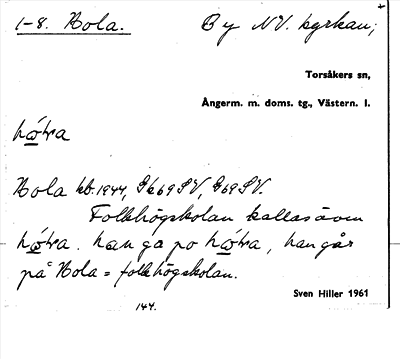 1-8. Hola. By NV. kyrkan;
Torsåkers sn,
Ångerm. m. doms. tg., Västern. l.
hó̲ɫa
Hola kb. 1944, Gk 69 SV, G 69 SV.
Folkhögskolan kallas även
hó̲ɫa. han ga po hó̲ɫa, han går
på Hola = folkhögskolan.
Sven Hiller 1961
144.